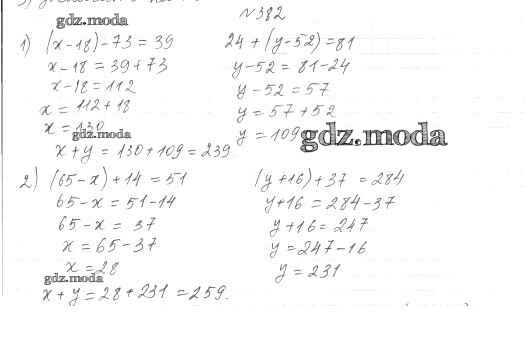 N 382
gdz.moda
1) (x-18)-73 = 39
x-18 = 39+73
x-18 = 112
x = 112+18
x = 130
gdz.moda
24 + (y-52) = 81
y-52 = 81-24
y-52 = 57
y = 57+52
y = 109
gdz.moda
x + y = 130+109 = 239
2) (65-x)+14 = 51
65-x = 51-14
65-x = 37
x = 65-37
x = 28
gdz.moda
(y+16)+37 = 284
y+16 = 284-37
y+16 = 247
y = 247-16
y = 231
x + y = 28+231 = 259.